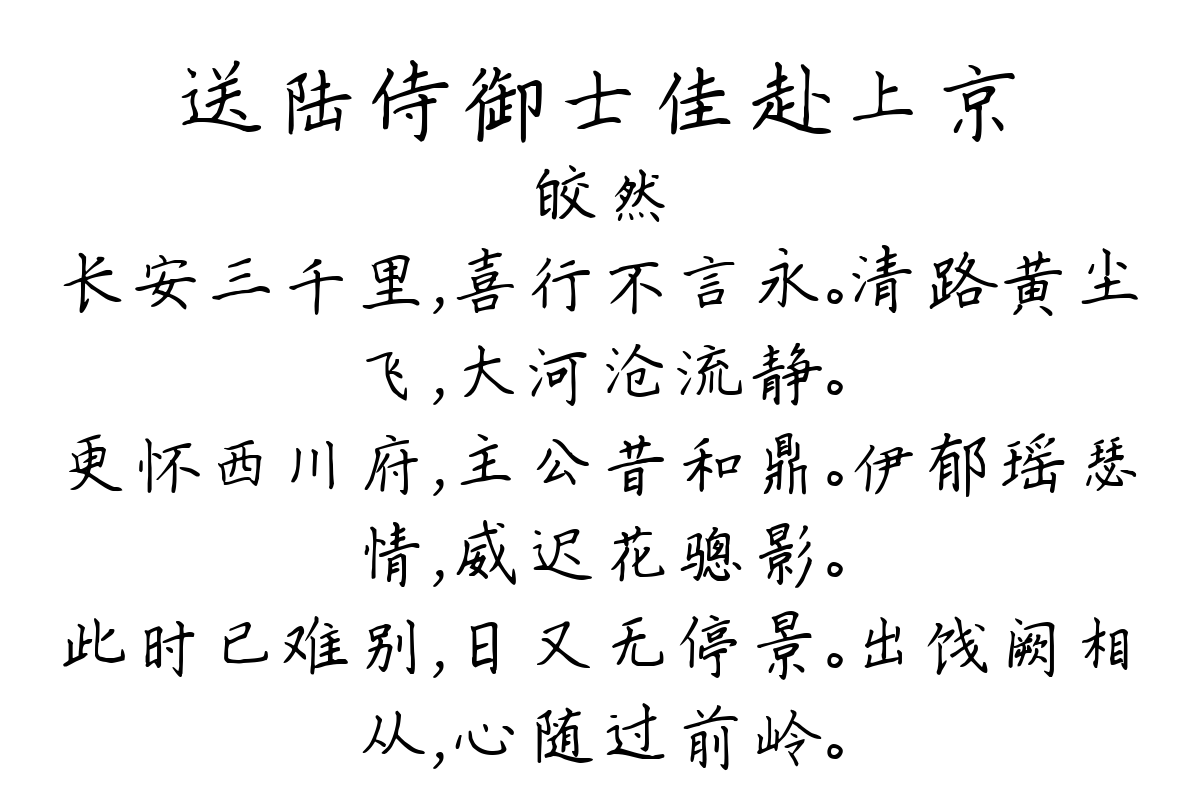 送陆侍御士佳赴上京
皎然
长安三千里,喜行不言永。清路黄尘
飞,大河沧流静。
更怀西川府,主公昔和鼎。伊郁瑶瑟
情,威迟花骢影。
此时已难别,日又无停景。出饯阙相
从,心随过前岭。